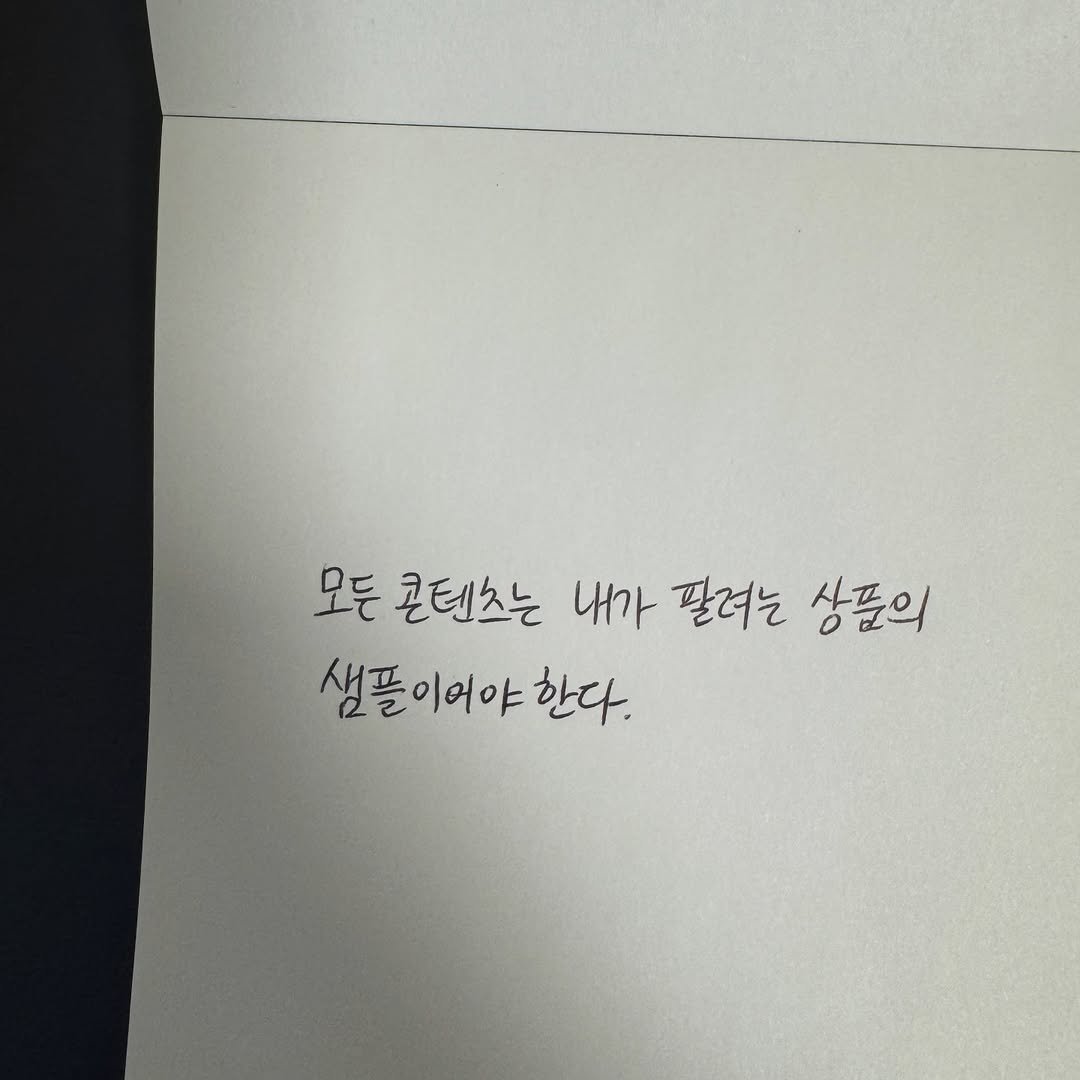 모든 콘텐츠는 내가 팔려는 상품의
샘플이어야 한다.